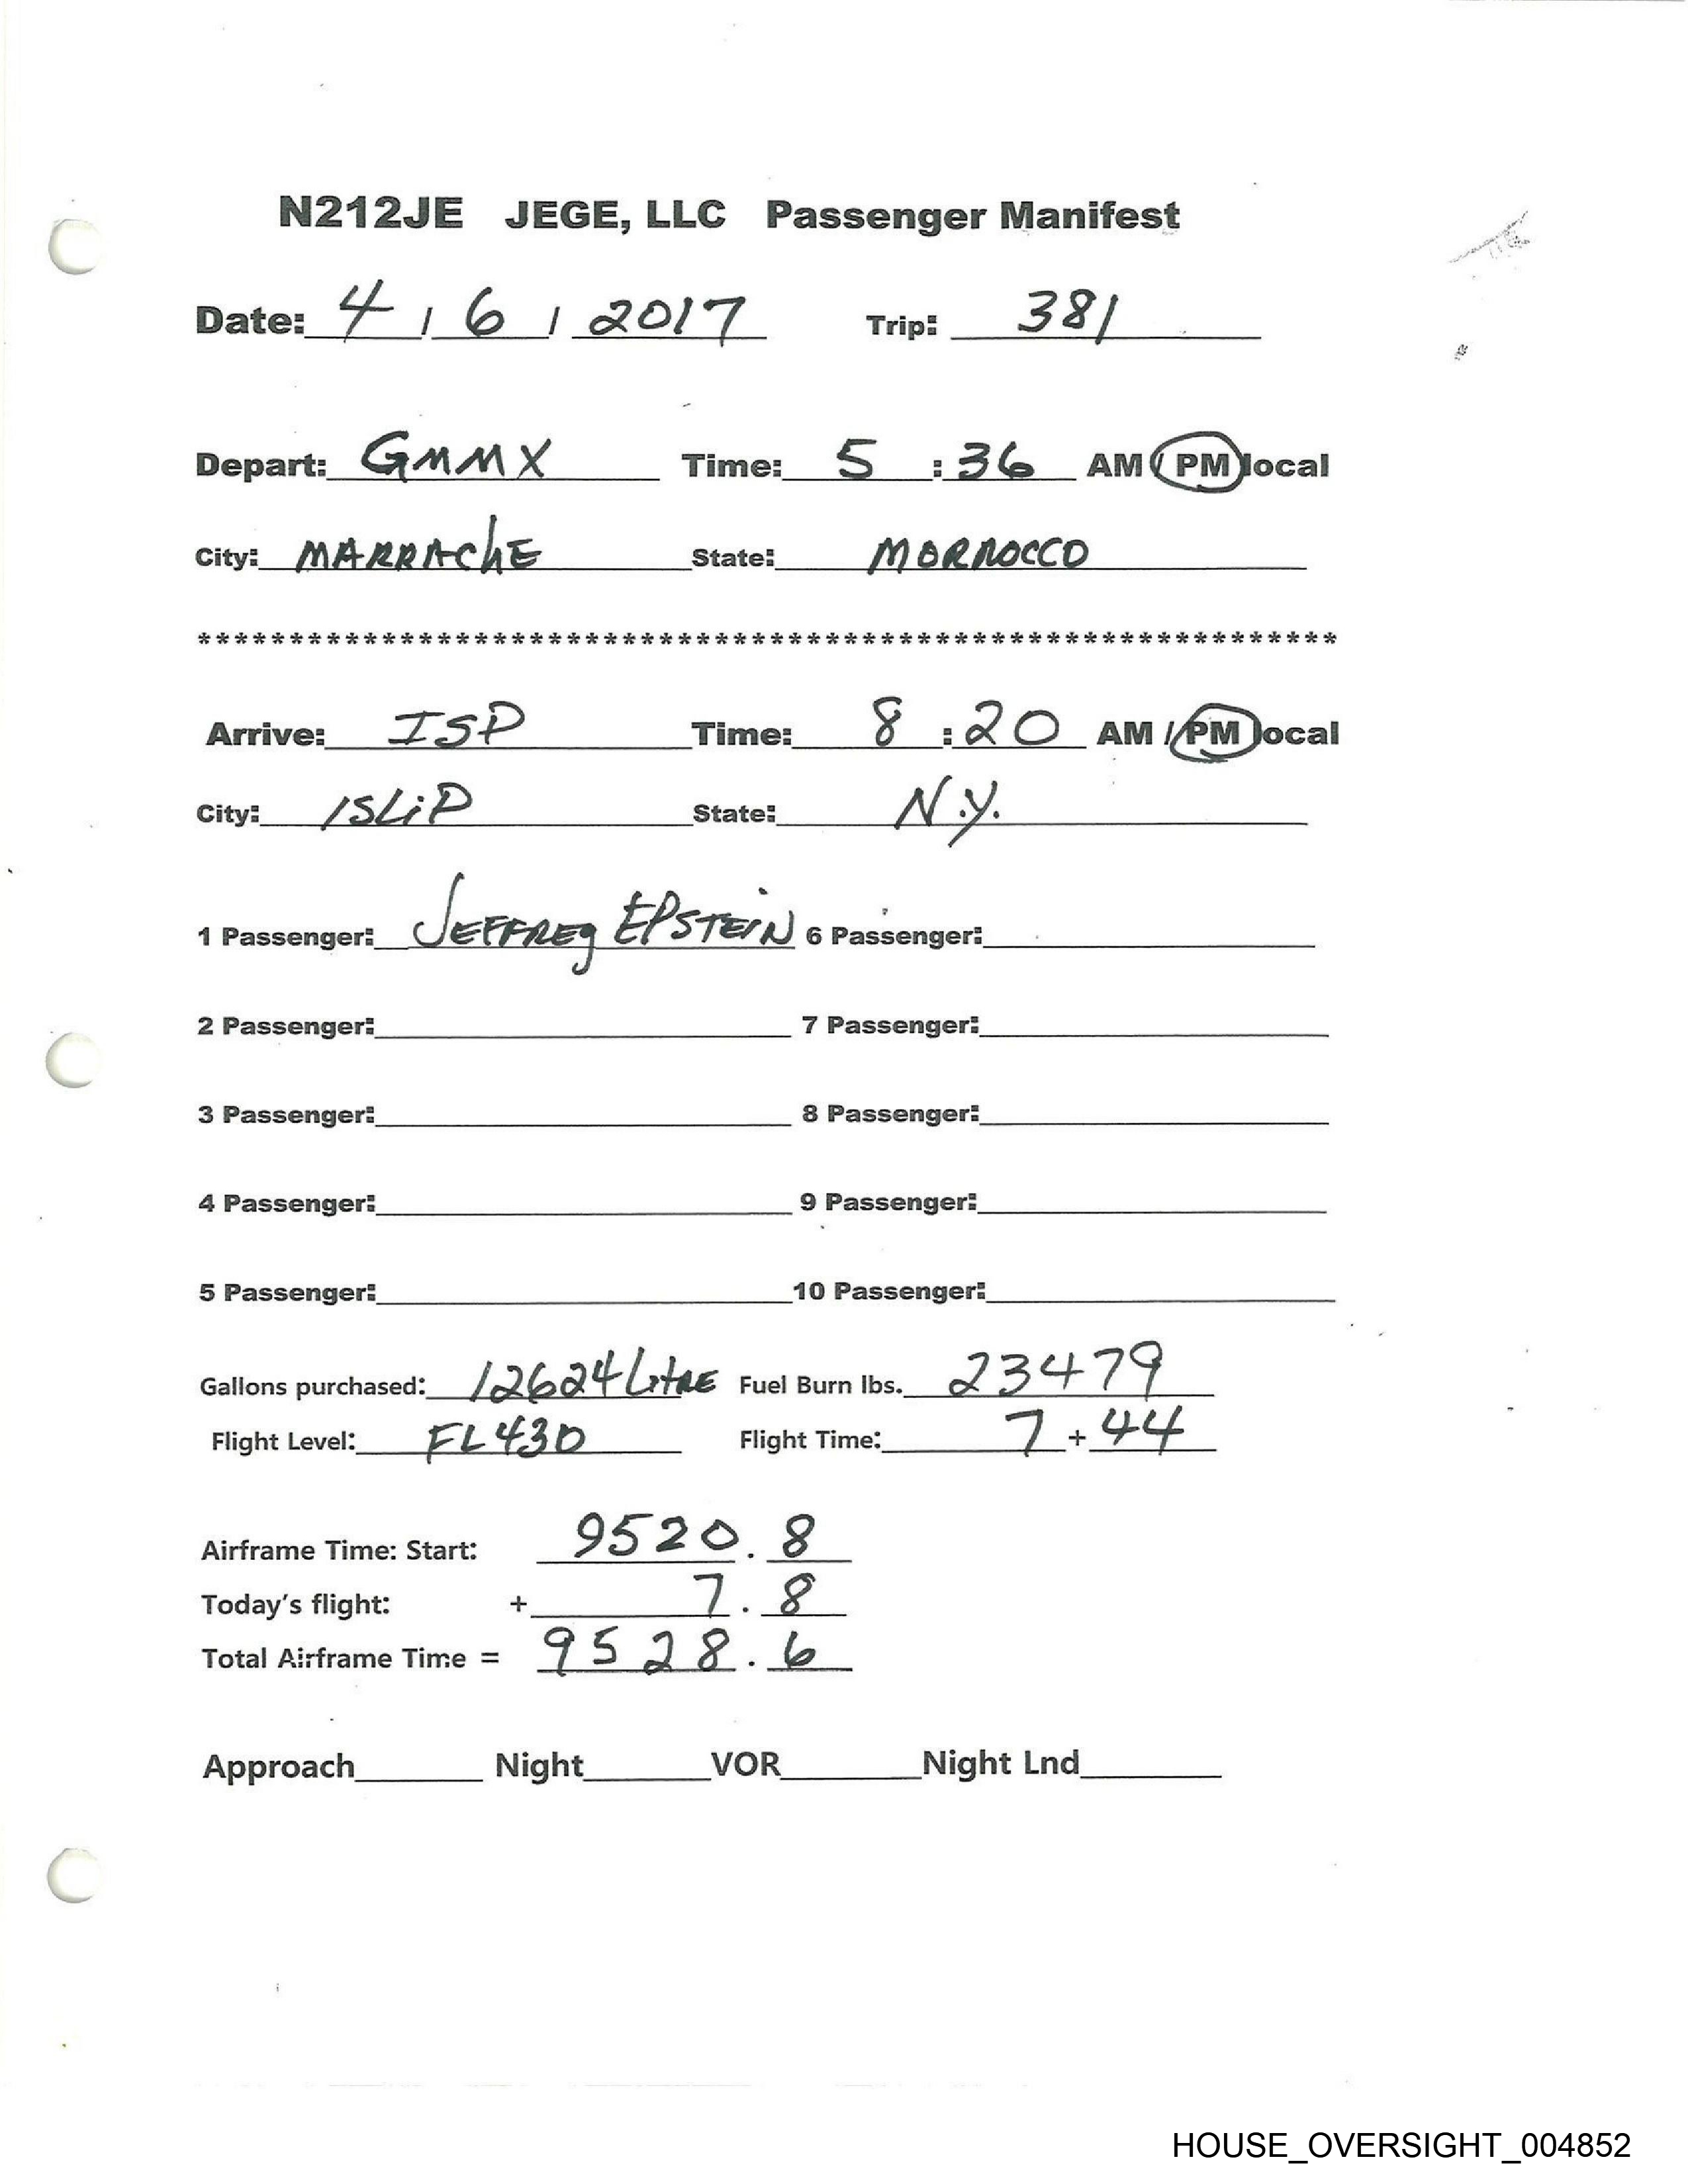 N212JE JEGE, LLC Passenger Manifest
Date: 4 / 6 / 2017 Trip: 381
Depart: GMMX Time: 5 : 36 AM / PM local
City: MARRAChE State: MORROCCO
**************************************************************
Arrive: ISP Time: 8 : 20 AM / PM local
City: ISLiP State: N.Y.
1 Passenger: JEFFREy EPSTEIN 6 Passenger:
2 Passenger: 7 Passenger:
3 Passenger: 8 Passenger:
4 Passenger: 9 Passenger:
5 Passenger: 10 Passenger:
Gallons purchased: 12624 LitRE Fuel Burn lbs. 23479
Flight Level: FL430 Flight Time: 7 + 44
Airframe Time: Start: 9520 . 8
Today's flight: + 7 . 8
Total Airframe Time = 9528 . 6
Approach Night VOR Night Lnd
HOUSE_OVERSIGHT_004852